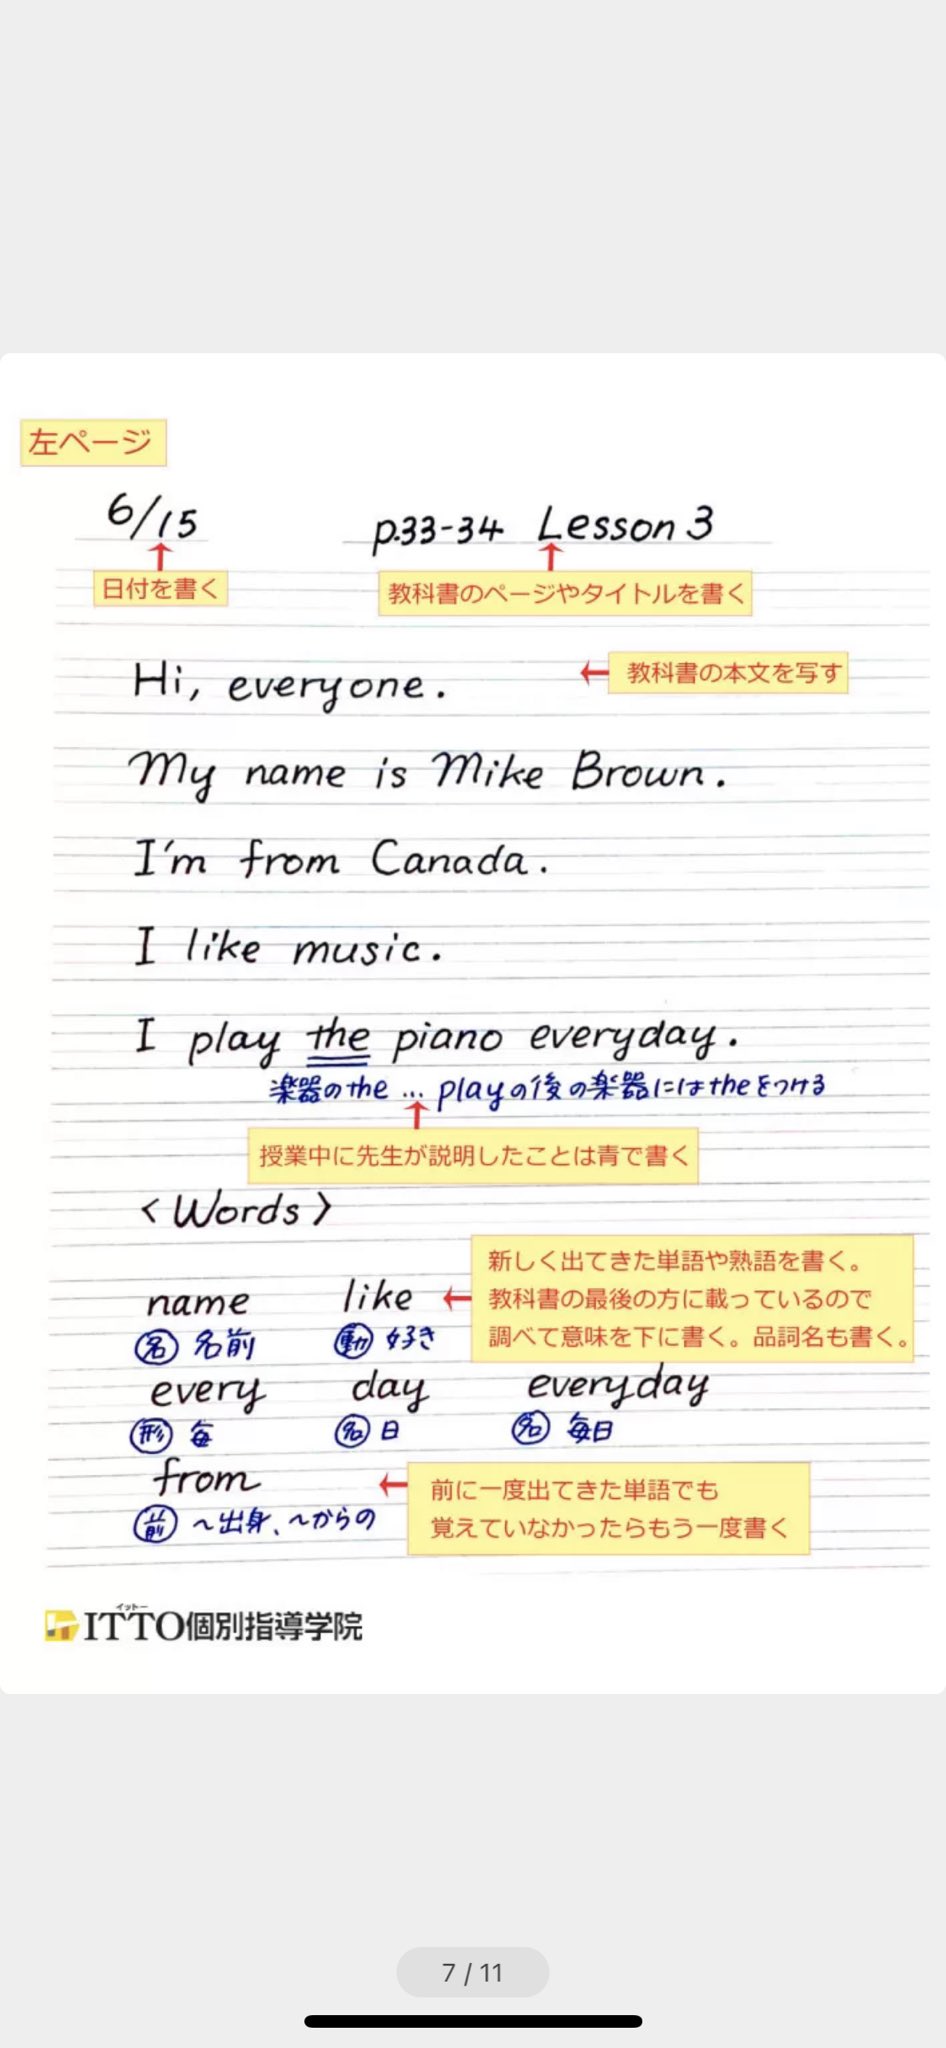 左ページ
6/15 p.33-34 Lesson 3
日付を書く 教科書のページやタイトルを書く
Hi, everyone. 教科書の本文を写す
My name is Mike Brown.
I'm from Canada.
I like music.
I play the piano everyday.
楽器のthe … playの後の楽器にはtheをつける
授業中に先生が説明したことは青で書く
<Words>
新しく出てきた単語や熟語を書く。
name like 教科書の最後の方に載っているので
名 名前 動 好き 調べて意味を下に書く。品詞名も書く。
every day everyday
形 毎 名 日 名 毎日
from 前に一度出てきた単語でも
前 〜出身、〜からの 覚えていなかったらもう一度書く
イットー
ITTO個別指導学院
7 / 11